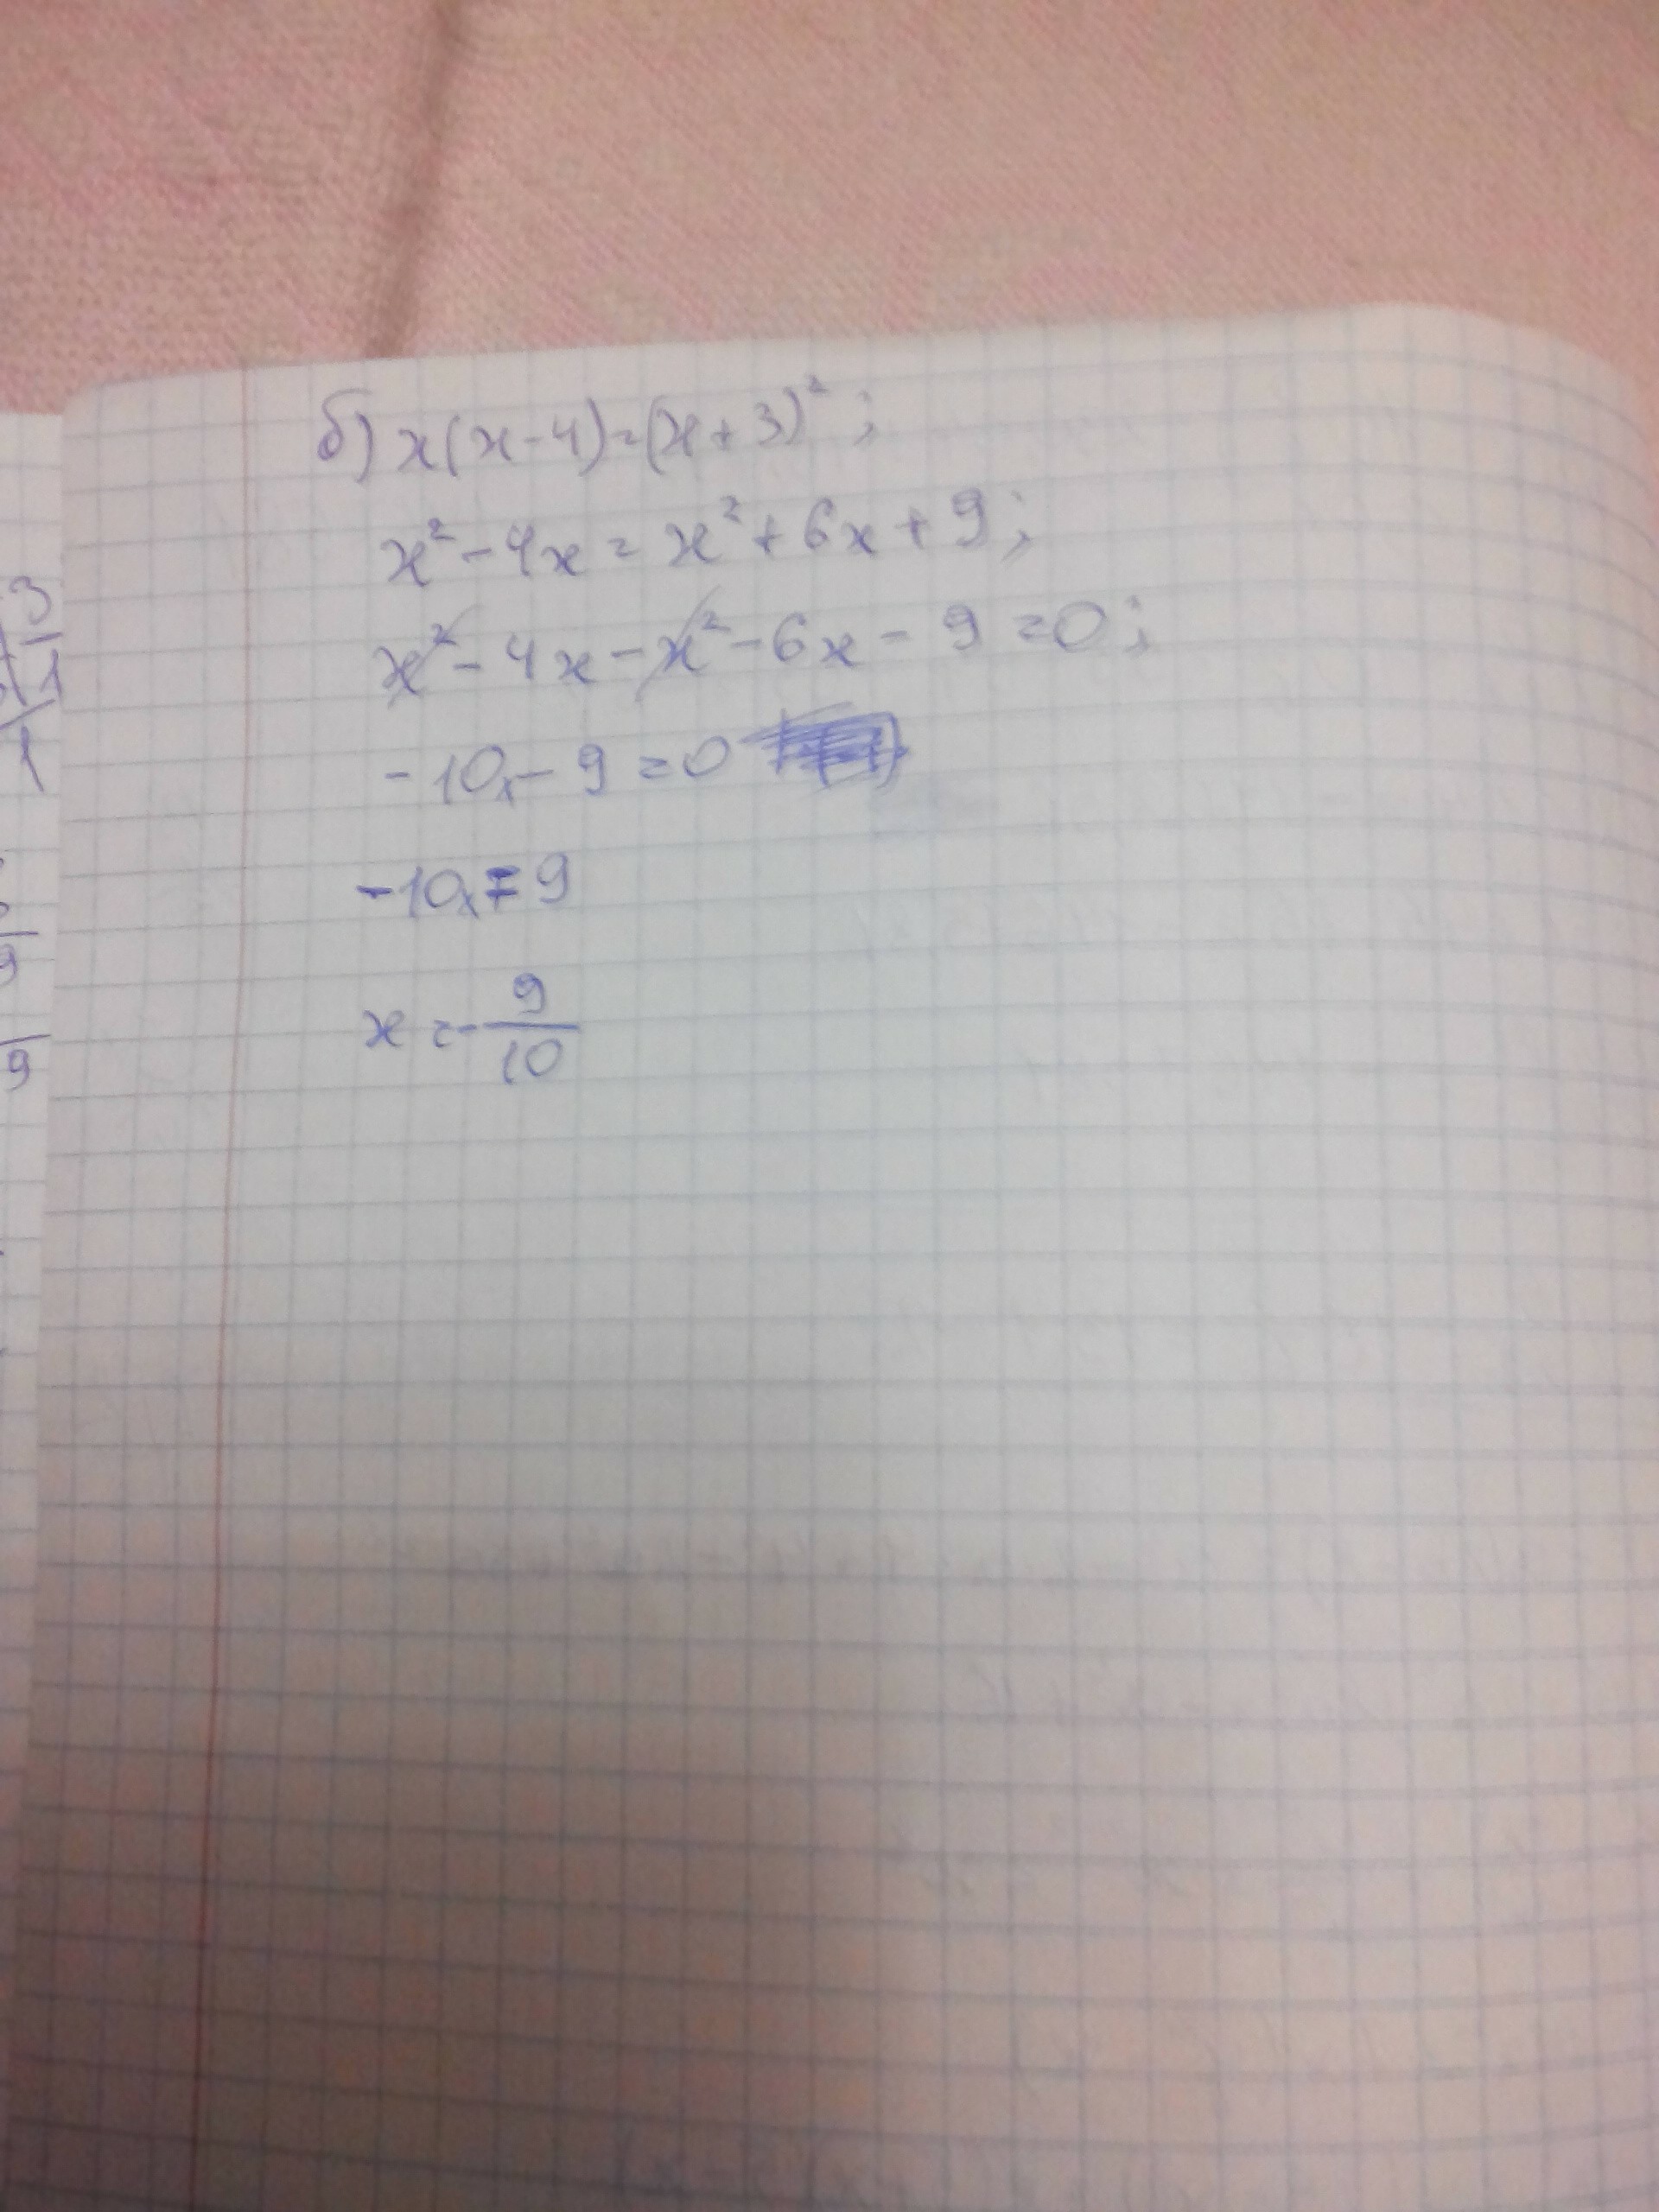 б) x(x-4)=(x+3)²;
x²-4x=x²+6x+9;
x²-4x-x²-6x-9=0;
-10x-9=0
-10x=9
x=-9/10
3
1
1
9
9